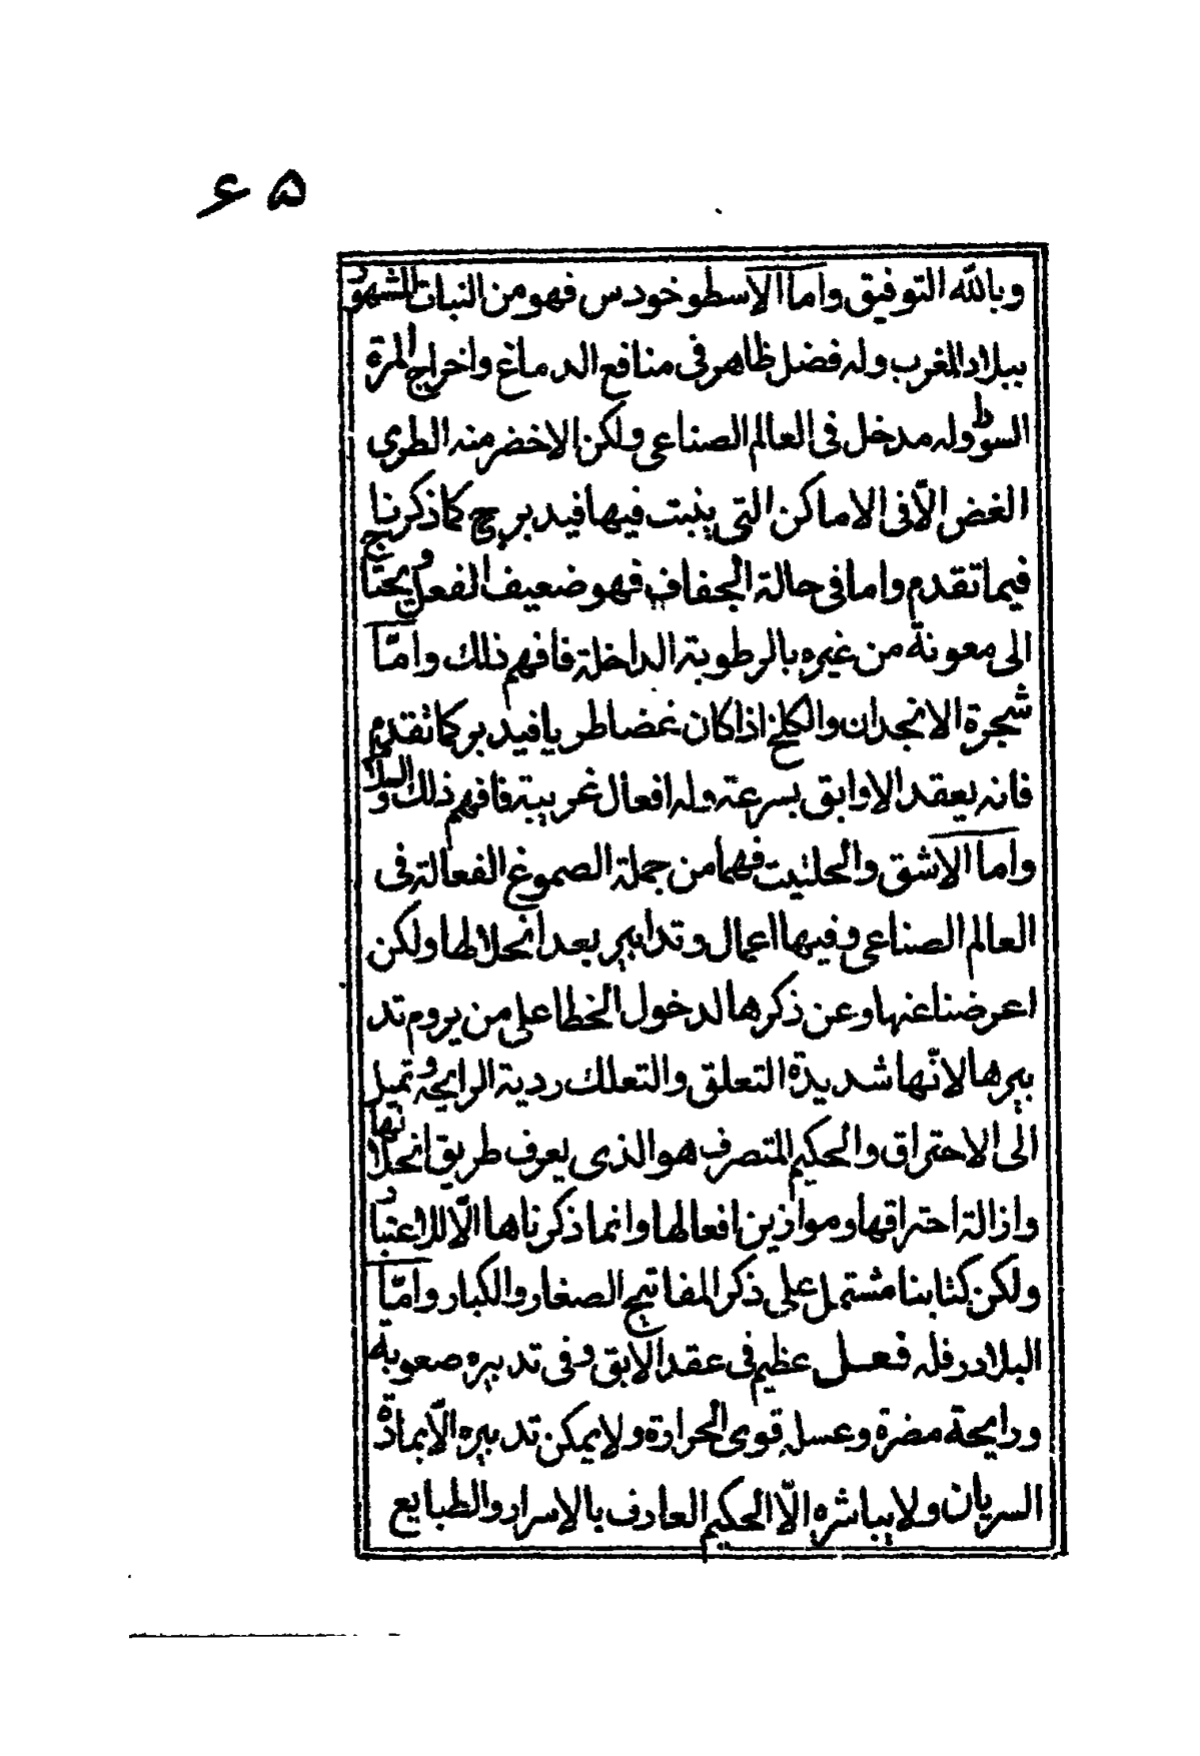 ۶۵
وبالله التوفيق واما الاسطوخودس فهو من النبات المشهور
ببلاد المغرب وله فضل ظاهر فى منافع الدماغ واخراج المرة
السودا وله مدخل فى العالم الصناعى ولكن الاخضر منه الطرى
الغض الّا فى الاماكن التى ينبت فيها فيدبر كما ذكرنا
فيما تقدم واما فى حالة الجفاف فهو ضعيف الفعل ويحتاج
الى معونة من غيره بالرطوبة الداخلة فافهم ذلك وامّا
شجرة الانجدان والكلخ اذا كان غضا طريا فيدبر كما تقدم
فانه يعقد الاوابق بسرعة وله افعال غريبة فافهم ذلك
واما الاشق والحلتيت فهما من جملة الصموغ الفعالة فى
العالم الصناعى وفيها اعمال وتدابير بعد انحلالها ولكن
اعرضنا عنها وعن ذكرها لدخول الخطا على من يروم تد
بيرها لانّها شديدة التعلق والتعلك ردية الرايحة وتميل
الى الاحتراق والحكيم المتصرف هو الذى يعرف طريق انحلالها
وازالة احتراقها وموازين افعالها وانما ذكرناها الّا للاعتبار
ولكن كتابنا مشتمل على ذكر المفاتيح الصغار والكبار وامّا
البلادر فله فعل عظيم فى عقد الابق وفى تدبيره صعوبة
ورايحة مضرة وعسله قوى الحرارة ولا يمكن تدبيره الّا بمادّة
السريان ولا يباشره الّا الحكيم العارف بالاسرار والطبايع